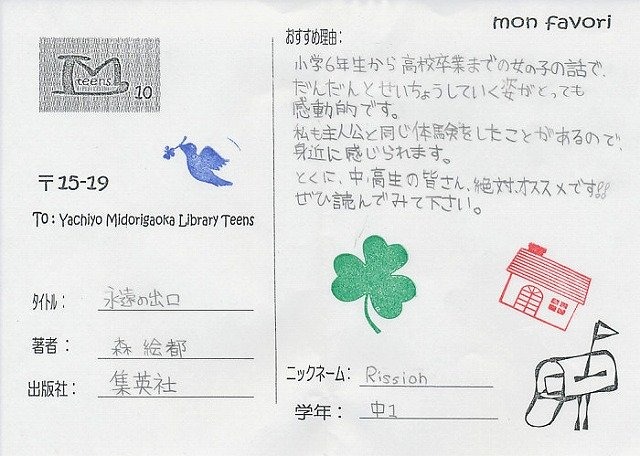 mon favori
teens
10
〒15-19
To : Yachiyo Midorigaoka Library Teens
タイトル： 永遠の出口
著者： 森 絵都
出版社： 集英社
おすすめ理由：
小学6年生から高校卒業までの女の子の話で、
だんだんとせいちょうしていく姿がとっても
感動的です。
私も主人公と同じ体験をしたことがあるので、
身近に感じられます。
とくに、中、高生の皆さん、絶対、オススメです!!
ぜひ読んでみて下さい。
ニックネーム： Rission
学年： 中1